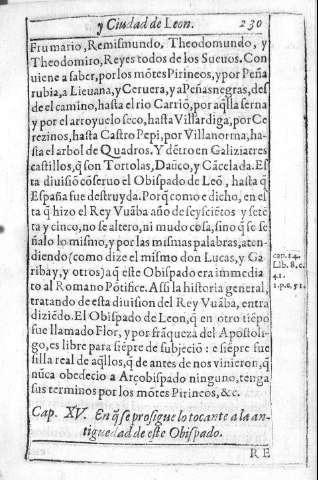 y Ciudad de Leon. 230
Frumario, Remismundo, Theodomundo, y
Theodomiro, Reyes todos de los Sueuos. Con
uiene a saber, por los mõtes Pirineos, y por Peña
rubia, a Lieuana, y Ceruera, y a Peñas negras, des
de el camino, hasta el rio Carriõ, por aq̃lla serna
y por el arroyuelo seco, hasta Villardiga, por Ce
rezinos, hasta Castro Pepi, por Villanorma, ha-
sta el arbol de Quadros. Y dẽtro en Galizia tres
castillos, q̃ son Tortolas, Dauco, y Cãcelada. Es
ta diuisiõ cõseruo el Obispado de Leõ, hasta q̃
España fue destruyda. Porq̃ como e dicho, en el
ta q̃ hizo el Rey Vuãba año de seyscientos y setẽ
ta y cinco, no se altero, ni mudo cosa, sino q̃ se se
ñalo lo mismo, y por las mismas palabras, aten-
diendo (como dize el mismo don Lucas, y Ga
ribay, y otros) a q̃ este Obispado era immedia
to al Romano Põtifice. Assi la historia general,
tratando de esta diuision del Rey Vuãba, entra
diziẽdo. El Obispado de Leon, q̃ en otro tiẽpo
fue llamado Flor, y por frãqueza del Apostoli-
go, es libre para siẽpre de subjeciõ: e siẽpre fue
silla real de aq̃llos, q̃ de antes de nos vinieron, q̃
nũca obedecio a Arçobispado ninguno, tenga
sus terminos por los mõtes Pirineos, &c.
con. 14.
Lib. 8. c.
41.
1. p. c. 51.
Cap. XV. En q̃ se prosigue lo tocante a la an-
tiguedad de este Obispado.
RE